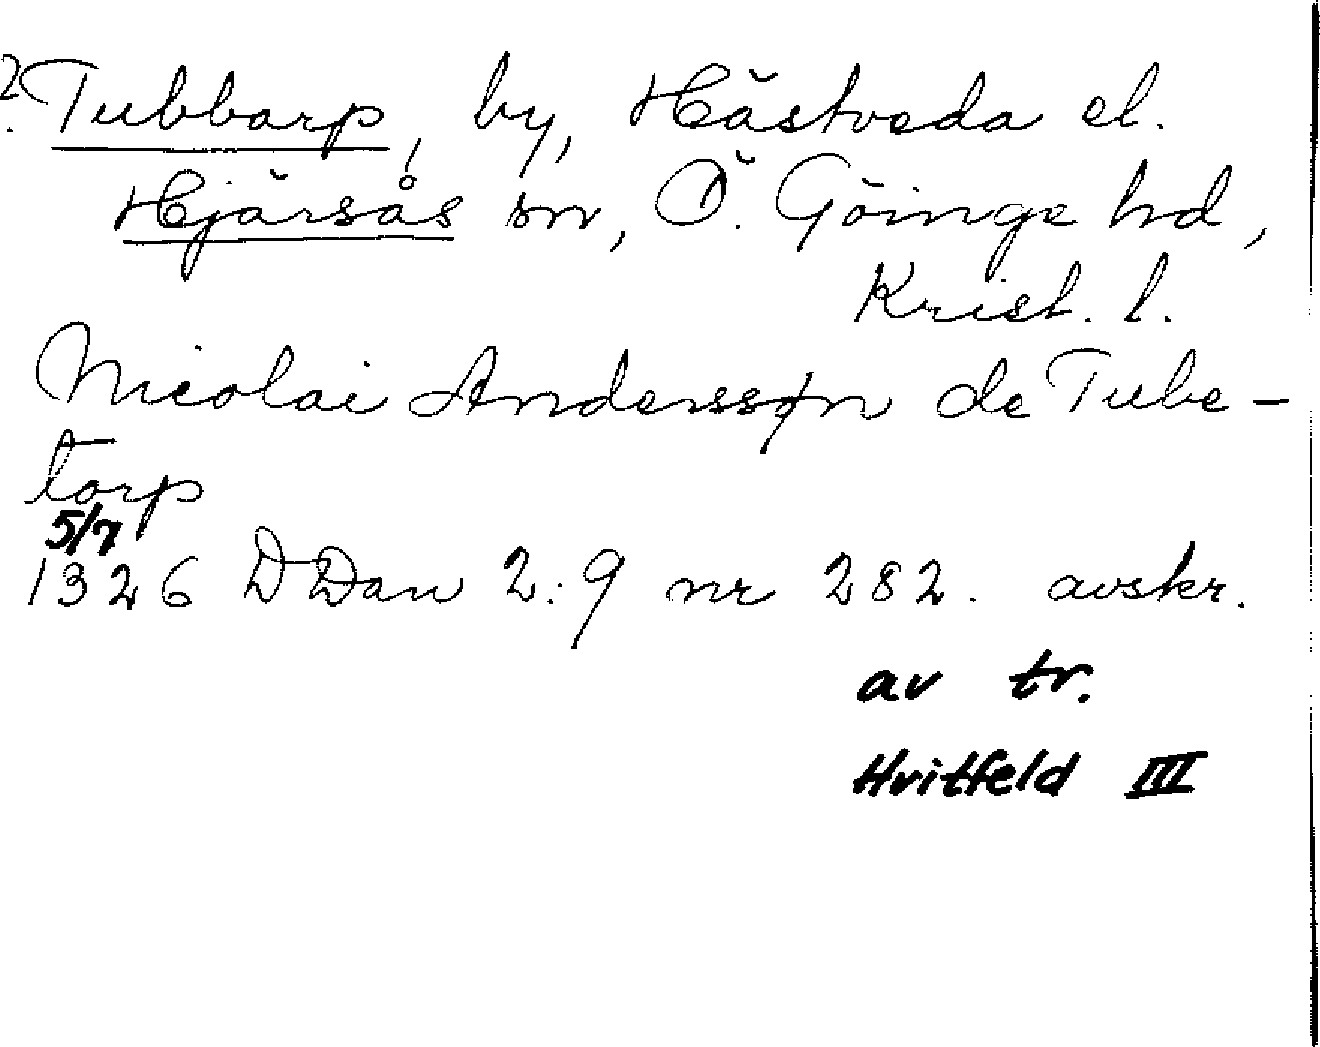 ? Tubbarp, by, Hästveda el.
Hjärsås sn, Ö. Göinge hd,
Krist. l.
Nicolai Anderssøn de Tube-
torp
5/7
1326 DDan 2:9 nr 282. avskr.
av tr.
Hvitfeld III